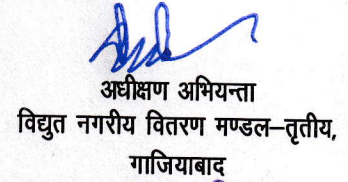 अधीक्षण अभियन्ता
विद्युत नगरीय वितरण मण्डल–तृतीय,
गाजियाबाद